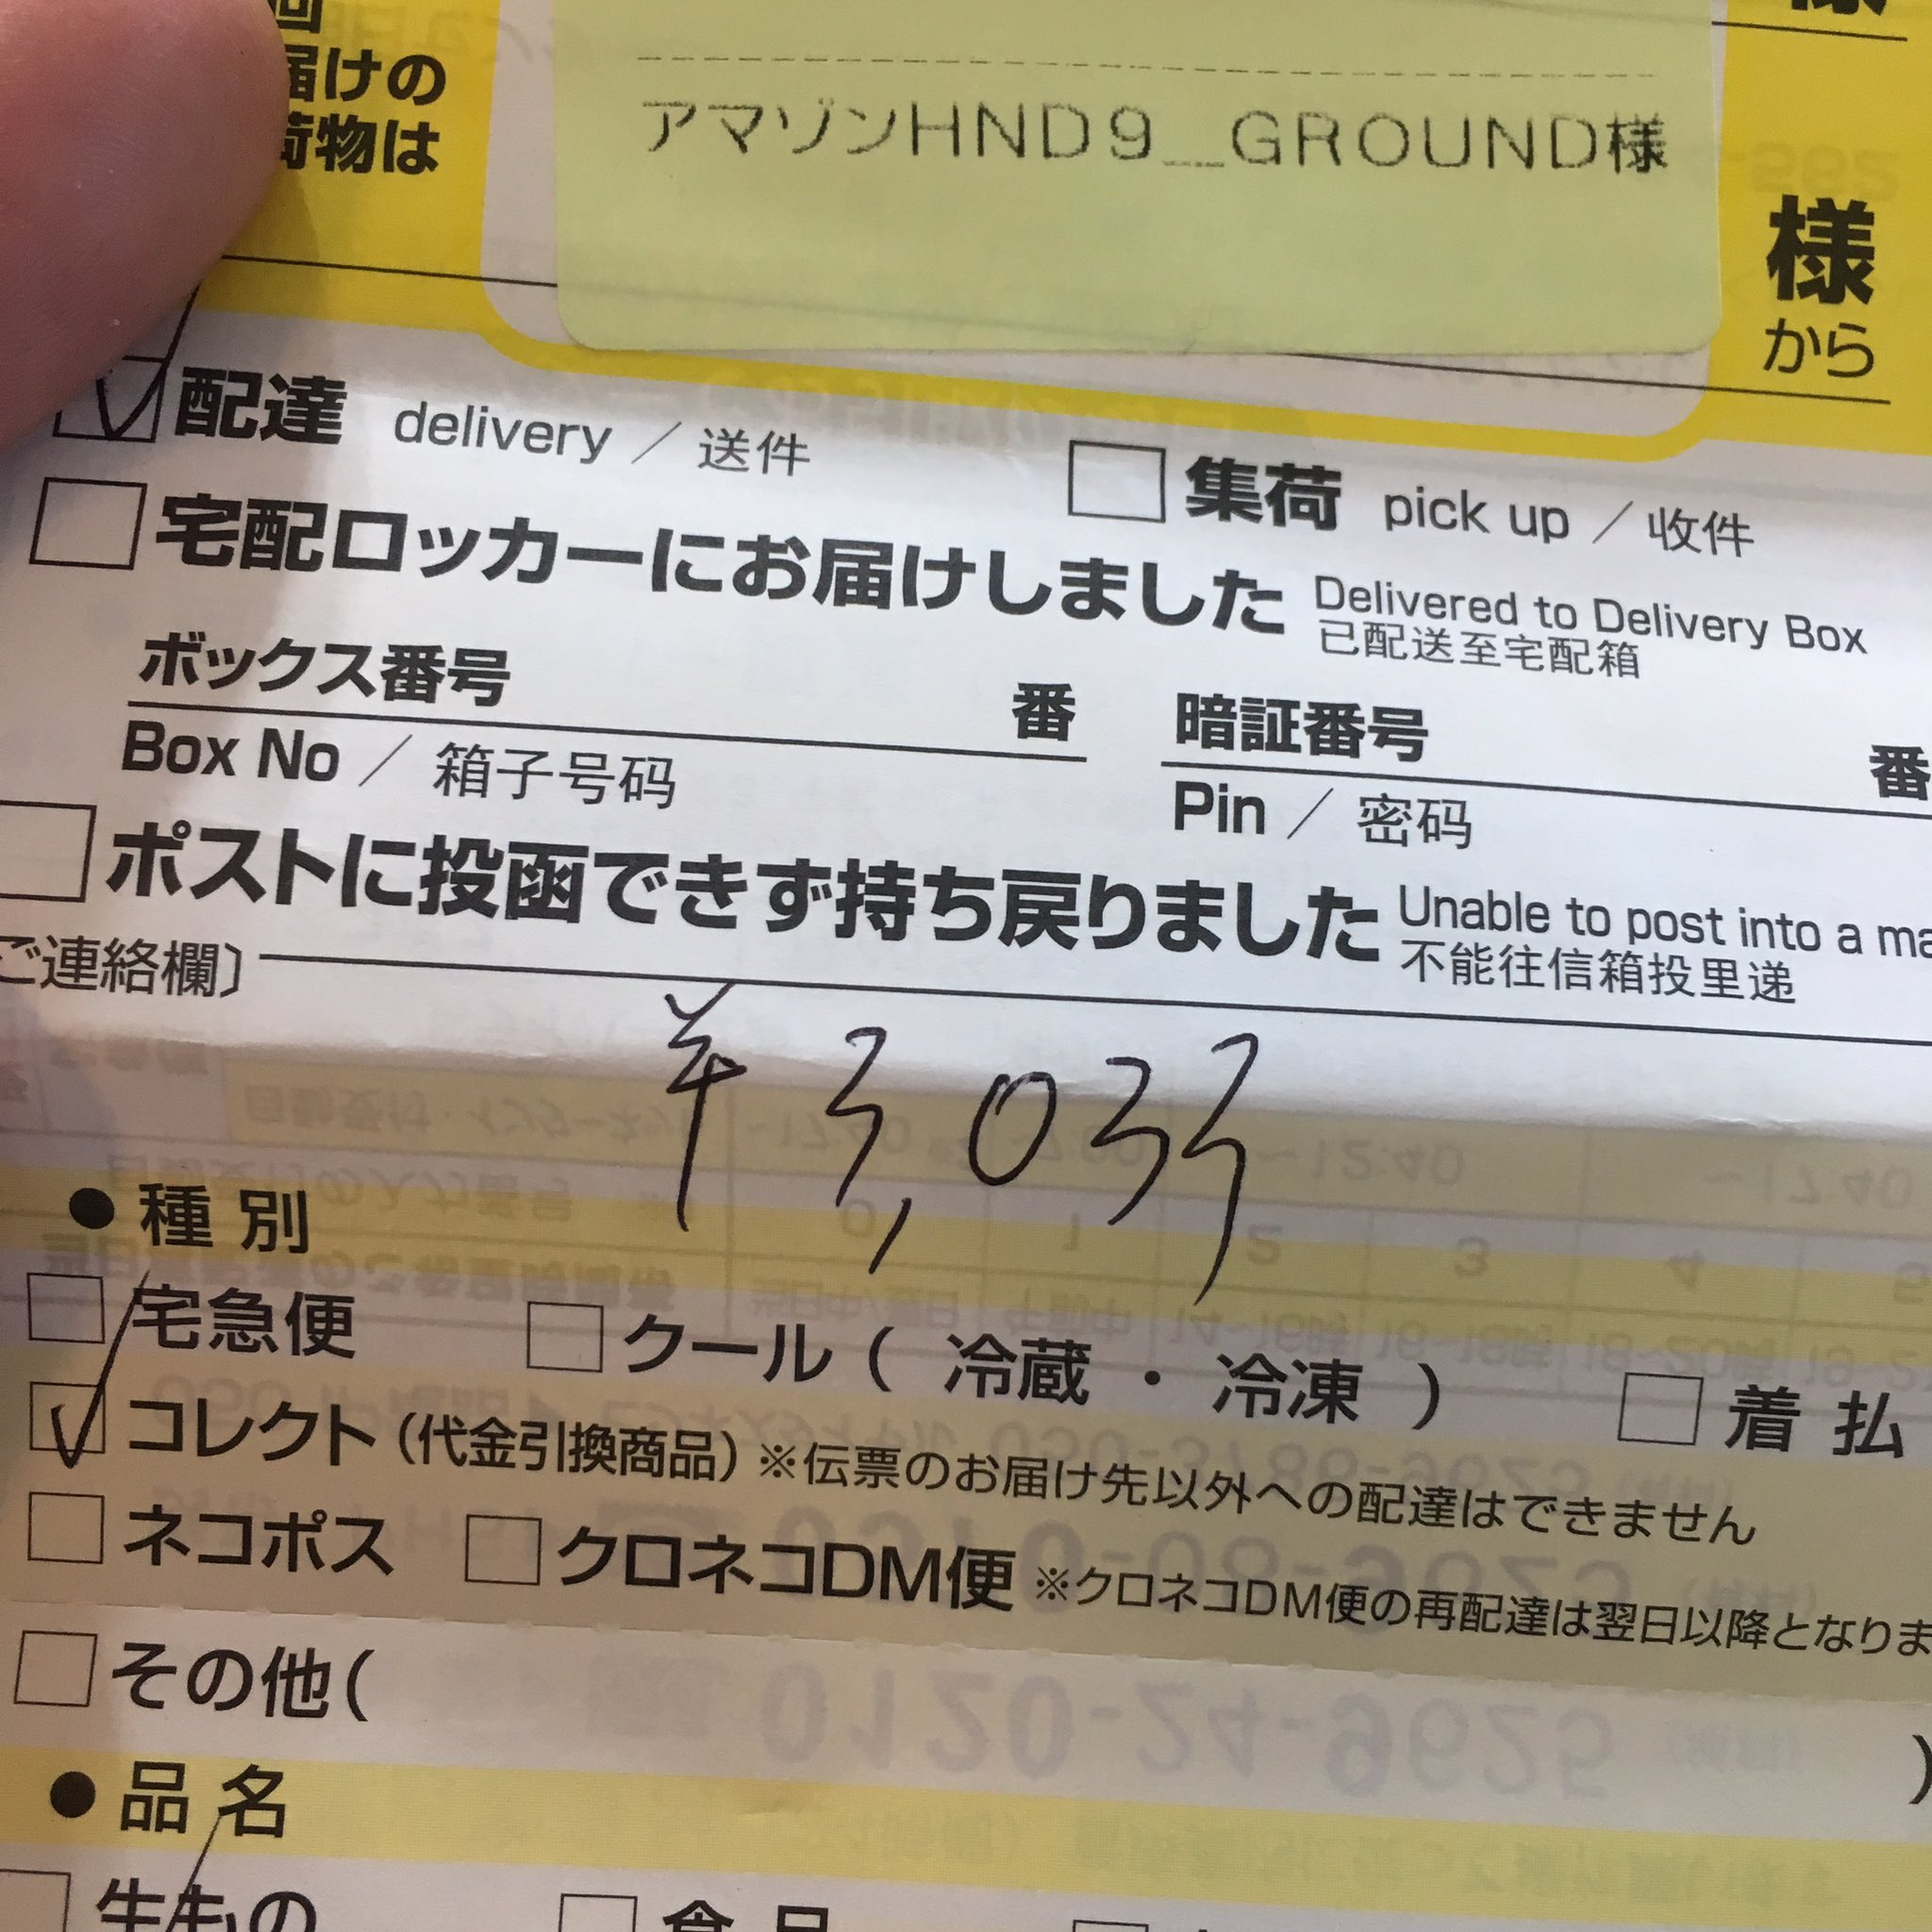 届けの
荷物は
アマゾンHND9__GROUND様
様
から
配達 delivery / 送件
集荷 pick up / 收件
宅配ロッカーにお届けしました Delivered to Delivery Box
已配送至宅配箱
ボックス番号 番 暗証番号 番
Box No / 箱子号码 Pin / 密码
ポストに投函できず持ち戻りました Unable to post into a ma
不能往信箱投里递
ご連絡欄〕
¥3,033
●種別
宅急便 クール(冷蔵・冷凍) 着払
コレクト(代金引換商品)※伝票のお届け先以外への配達はできません
ネコポス クロネコDM便 ※クロネコDM便の再配達は翌日以降となりま
その他( )
●品名
生もの 食品